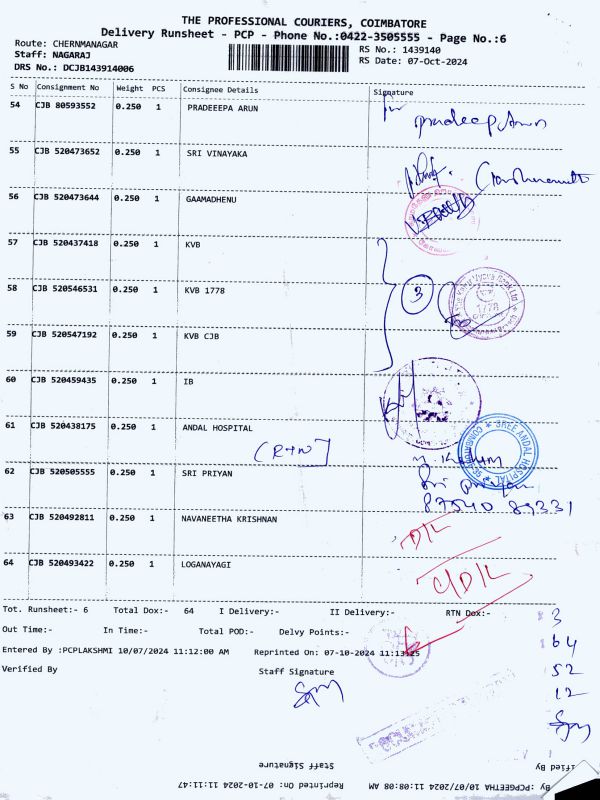 THE PROFESSIONAL COURIERS, COIMBATORE
Delivery Runsheet - PCP - Phone No.:0422-3505555 - Page No.:6
Route: CHERNMANAGAR
RS No.: 1439140
Staff: NAGARAJ
RS Date: 07-Oct-2024
DRS No.: DCJB143914006
S No Consignment No Weight PCS Consignee Details Signature
54 CJB 80593552 0.250 1 PRADEEEPA ARUN
pradeep Arun
55 CJB 520473652 0.250 1 SRI VINAYAKA
56 CJB 520473644 0.250 1 GAAMADHENU
57 CJB 520437418 0.250 1 KVB
58 CJB 520546531 0.250 1 KVB 1778
3
1778
59 CJB 520547192 0.250 1 KVB CJB
60 CJB 520459435 0.250 1 IB
61 CJB 520438175 0.250 1 ANDAL HOSPITAL
SREE ANDAL HOSPITAL
62 CJB 520505555 0.250 1 SRI PRIYAN
Sri Priyan
87540 89331
63 CJB 520492811 0.250 1 NAVANEETHA KRISHNAN
D/L
64 CJB 520493422 0.250 1 LOGANAYAGI
C/D/L
Tot. Runsheet:- 6 Total Dox:- 64 I Delivery:- II Delivery:- RTN Dox:-
3
Out Time:- In Time:- Total POD:- Delvy Points:-
64
Entered By :PCPLAKSHMI 10/07/2024 11:12:00 AM Reprinted On: 07-10-2024 11:13:25
52
Verified By Staff Signature
12
Staff Signature
By :PCPGEETHA 10/07/2024 11:08:08 AM Reprinted On: 07-10-2024 11:11:47